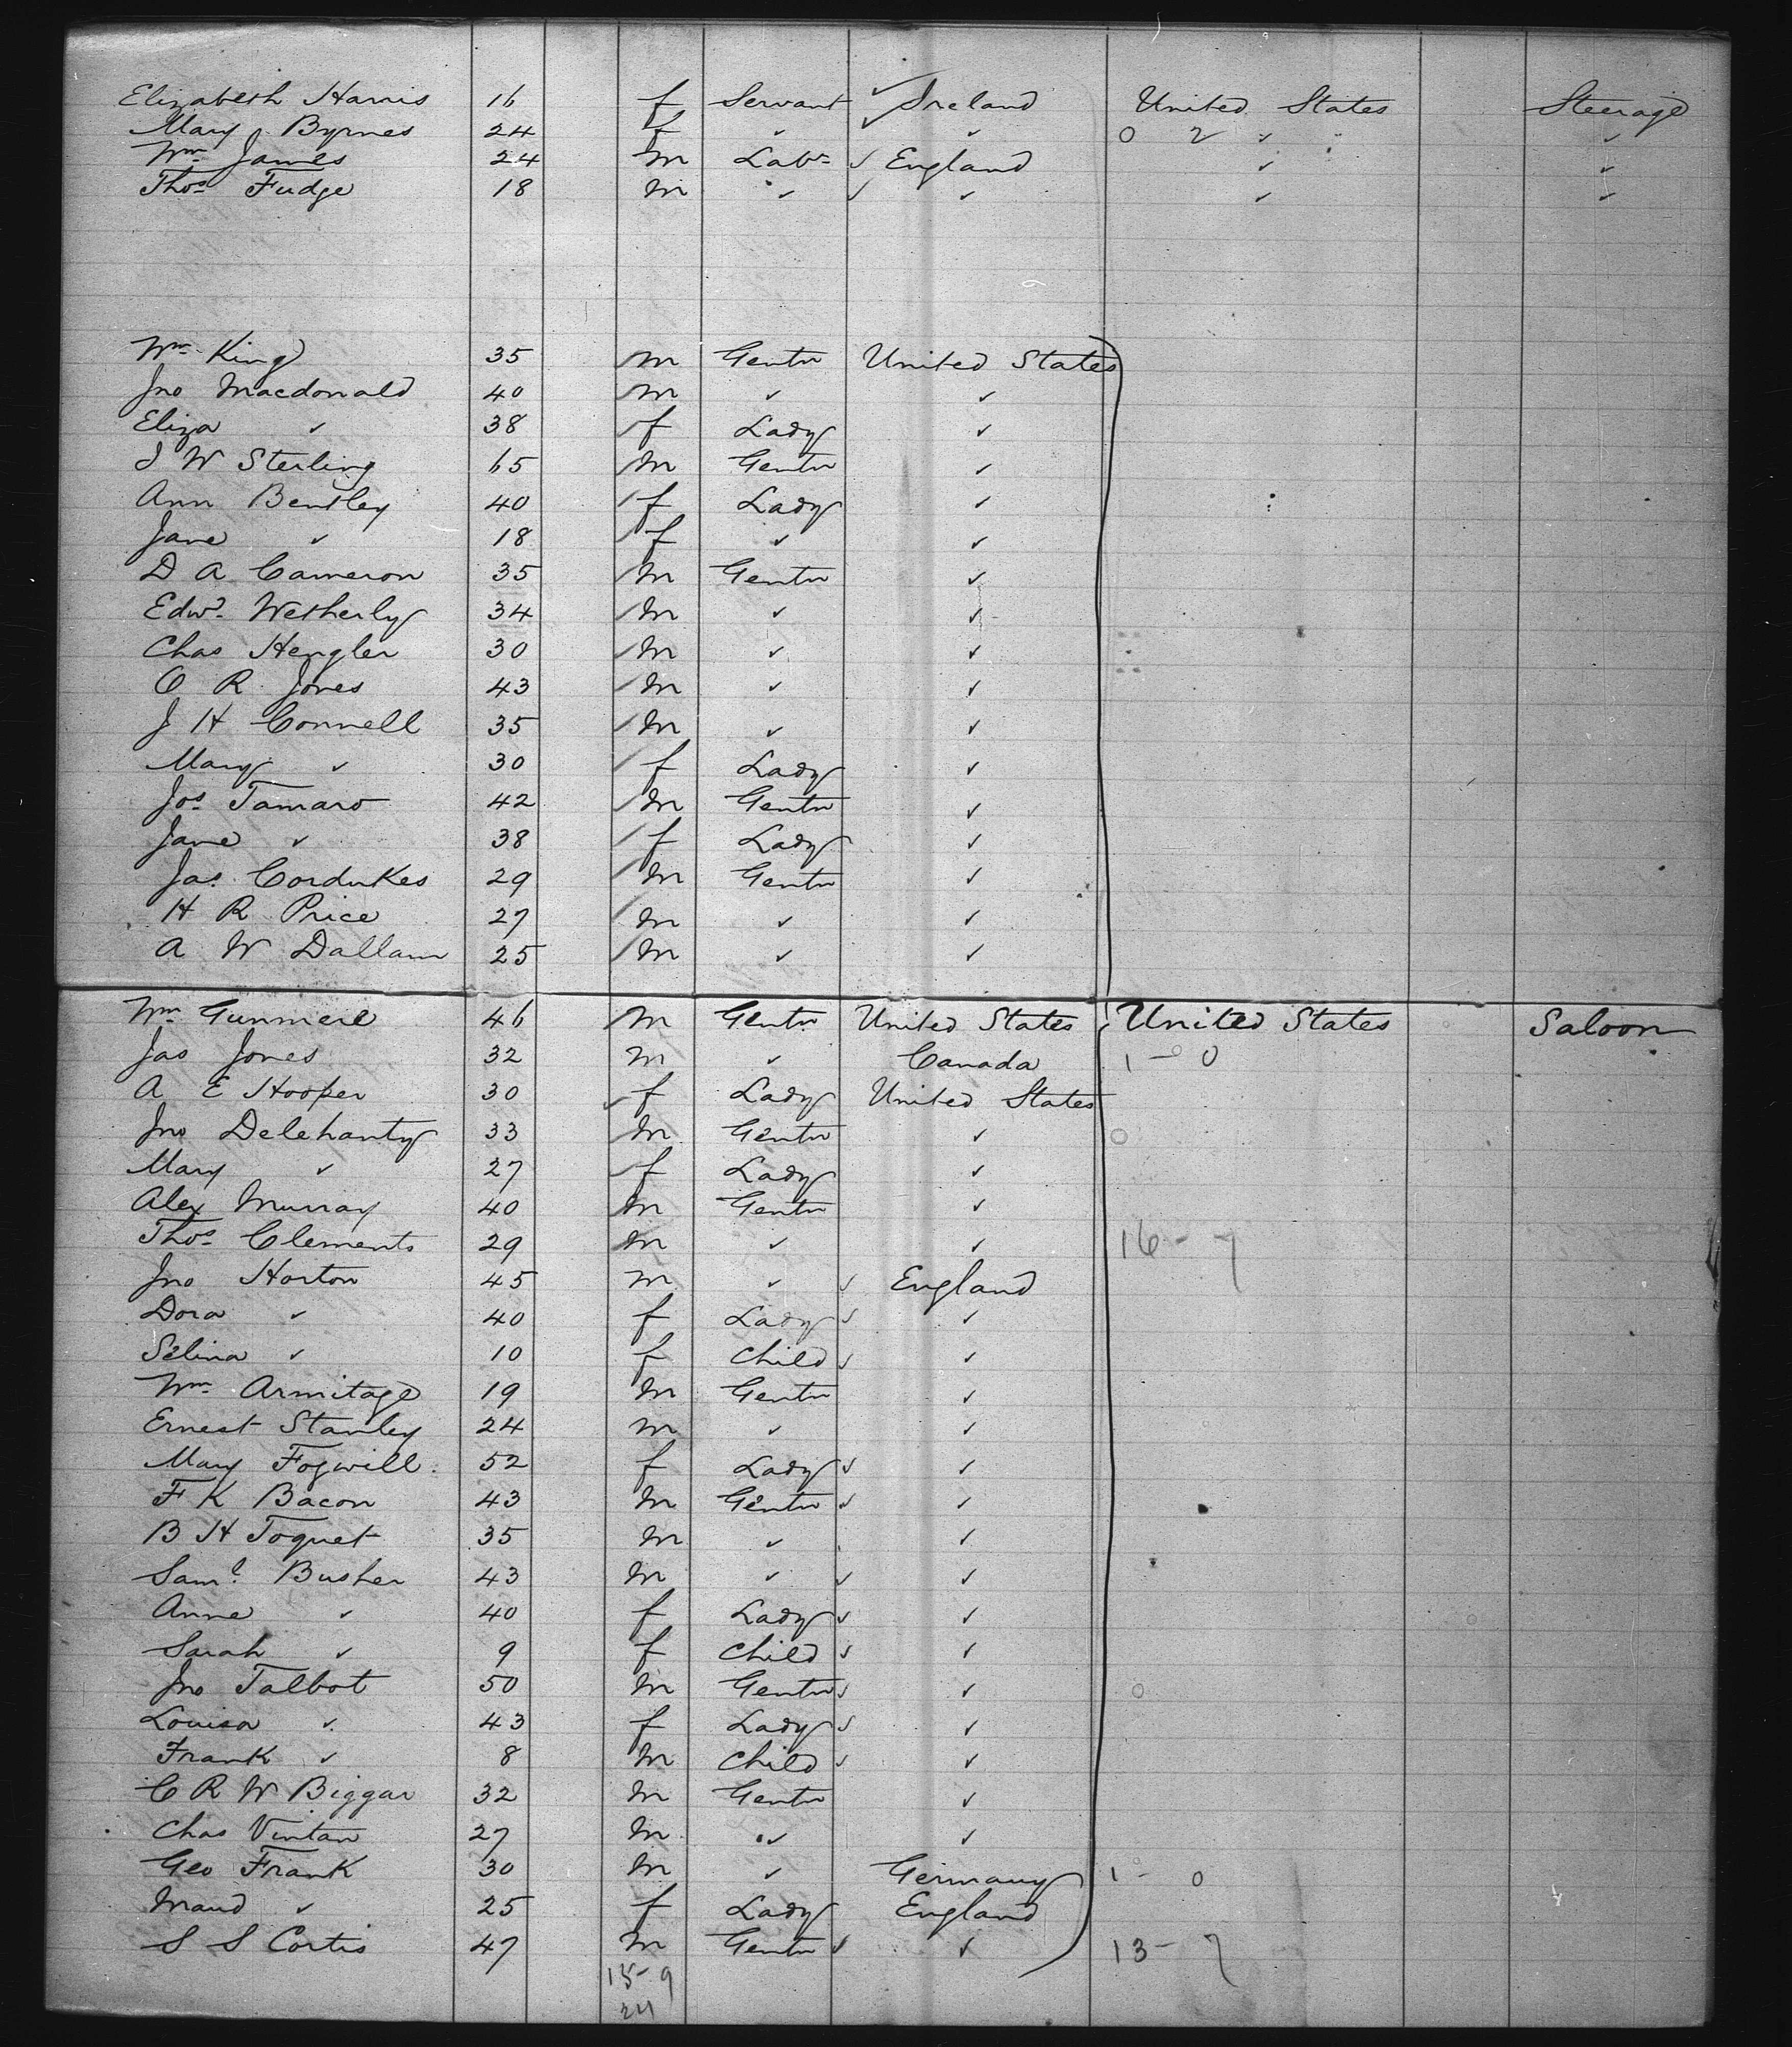 Elizabeth Harris 16 f Servant ✓ Ireland United States Steerage
Mary Byrnes 24 f " ✓ " 0 2 " " "
Wm James 24 m Labr ✓ England " "
Thos Fudge 18 m " ✓ " " "
Wm King 35 m Gentn United States
Jno Macdonald 40 m " "
Eliza " 38 f Lady "
J W Sterling 65 m Gentn "
Ann Bentley 40 f Lady "
Jane " 18 f " "
D A Cameron 35 m Gentn "
Edwd Wetherly 34 m " "
Chas Hengler 30 m " "
C R Jones 43 m " "
J H Connell 35 m " "
Mary " 30 f Lady "
Jos Tamaro 42 m Gentn "
Jane " 38 f Lady "
Jas Cordukes 29 m Gentn "
H R Price 27 m " "
A W Dallam 25 m " "
Wm Gunmere 46 m Gentn United States United States Saloon
Jas Jones 32 m " Canada 1 - 0
A E Hooper 30 ✓ f Lady United States
Jno Delehanty 33 m Gentn " 0
Mary " 27 f Lady "
Alex Murray 40 m Gentn "
Thos Clements 29 m " " 16 - 7
Jno Horton 45 m " ✓ England
Dora " 40 f Lady ✓ "
Selina " 10 f Child ✓ "
Wm Armitage 19 m Gentn "
Ernest Stanley 24 m " "
Mary Fogwill 52 f Lady ✓ "
F K Bacon 43 m Gentn ✓ "
B H Toquet 35 m " "
Saml Busher 43 m " ✓ "
Anne " 40 f Lady ✓ "
Sarah " 9 f Child ✓ "
Jno Talbot 50 m Gentn ✓ " 0
Louisa " 43 f Lady ✓ "
Frank " 8 m Child ✓ "
C R W Biggar 32 m Gentn "
Chas Vintan 27 m " "
Geo Frank 30 m " Germany 1 - 0
Maud " 25 f Lady England
S S Cortis 47 m Gentn ✓ " 13 - 7
15 - 9
24